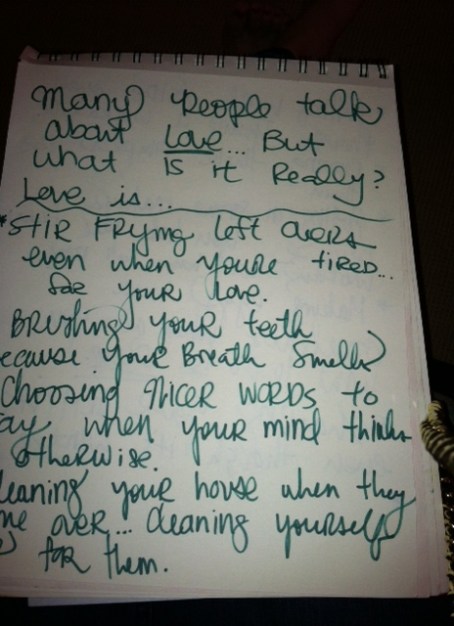 many people talk
about Love... But
what is it Really?
Love is...
*Stir Frying left overs
even when youre tired...
for your love.
Brushing your teeth
ecause your Breath Smells
Choosing nicer words to
ay when your mind thinks
otherwise.
leaning your house when they
me over... cleaning yourself
for them.